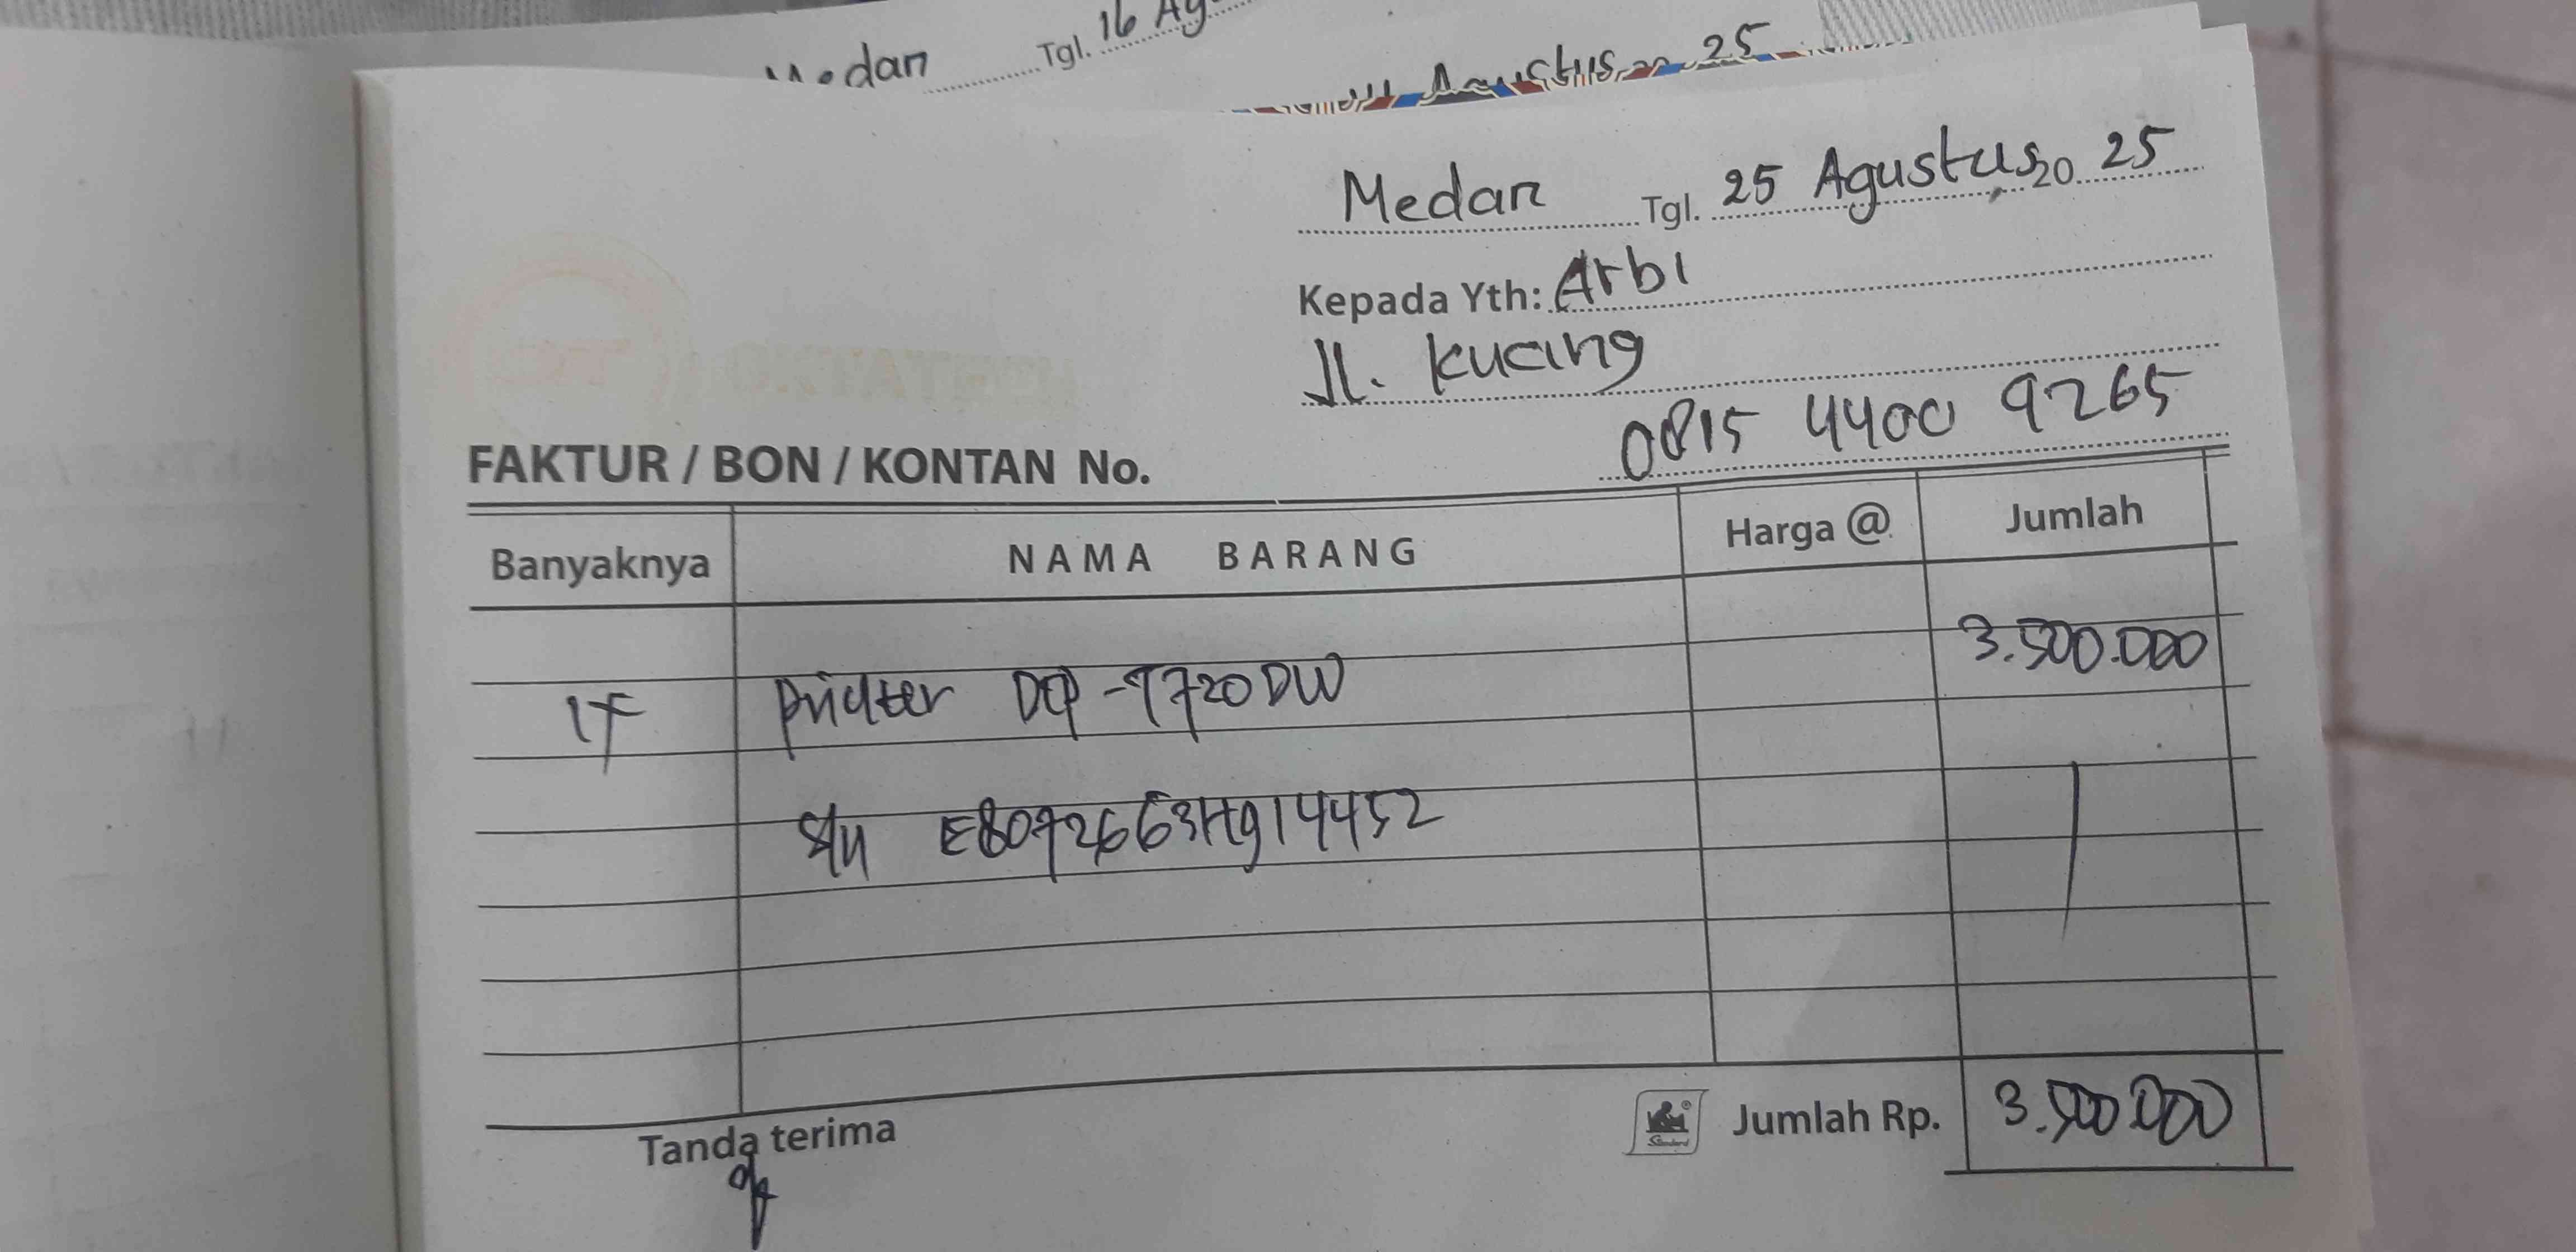 Medan Tgl. 16 Ag
Agustus 25
Medan Tgl. 25 Agustus 20 25
Kepada Yth: Arbi
Jl. Kucing
0815 4400 9265
FAKTUR / BON / KONTAN No.
Banyaknya NAMA BARANG Harga @ Jumlah
3.500.000
1 Printer DCP-T720DW
S/N E8072663H914452
Tanda terima
Standard
Jumlah Rp. 3.500.000